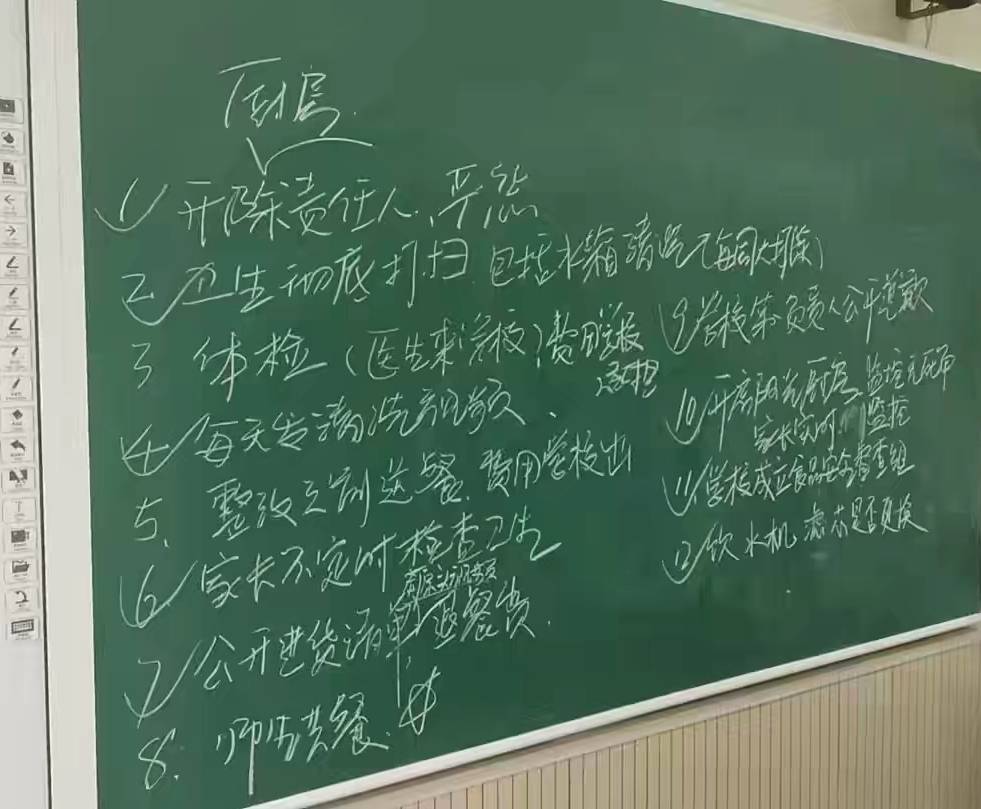 厨房.
1 开除责任人、严惩
2 卫生彻底打扫 包括水箱清洗(每周大扫除)
3 体检(医生来学校)费用学校
承担
4 每天发清洗视频、
5、整改之前送餐、费用学校出
6 家长不定时检查卫生
7 公开进货清单、退餐费.
8. 师生共餐.
9 学校第一负责人公开道歉
10 开启阳光厨房 监控无死角
家长实时 监控
11 学校成立食品安全督查组
12 饮水机 滤芯是否更换